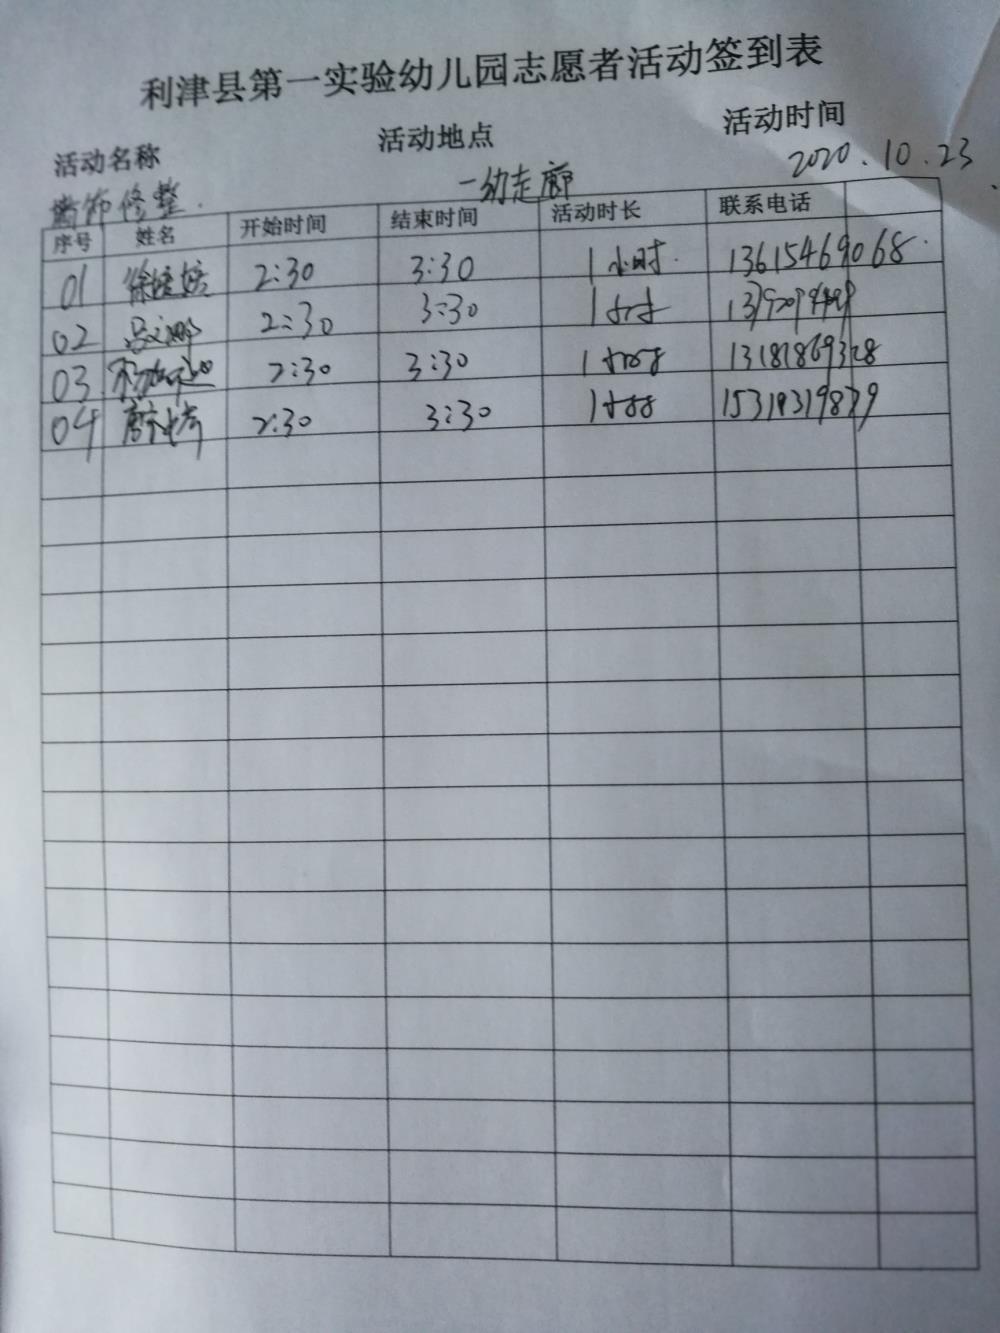 利津县第一实验幼儿园志愿者活动签到表
活动名称 活动地点 活动时间
修整. 一幼走廊 2020.10.23
序号 姓名 开始时间 结束时间 活动时长 联系电话
01 2:30 3:30 1小时. 13615469068.
02 2:30 3:30 1小时
03 2:30 3:30 1小时
04 2:30 3:30 1小时